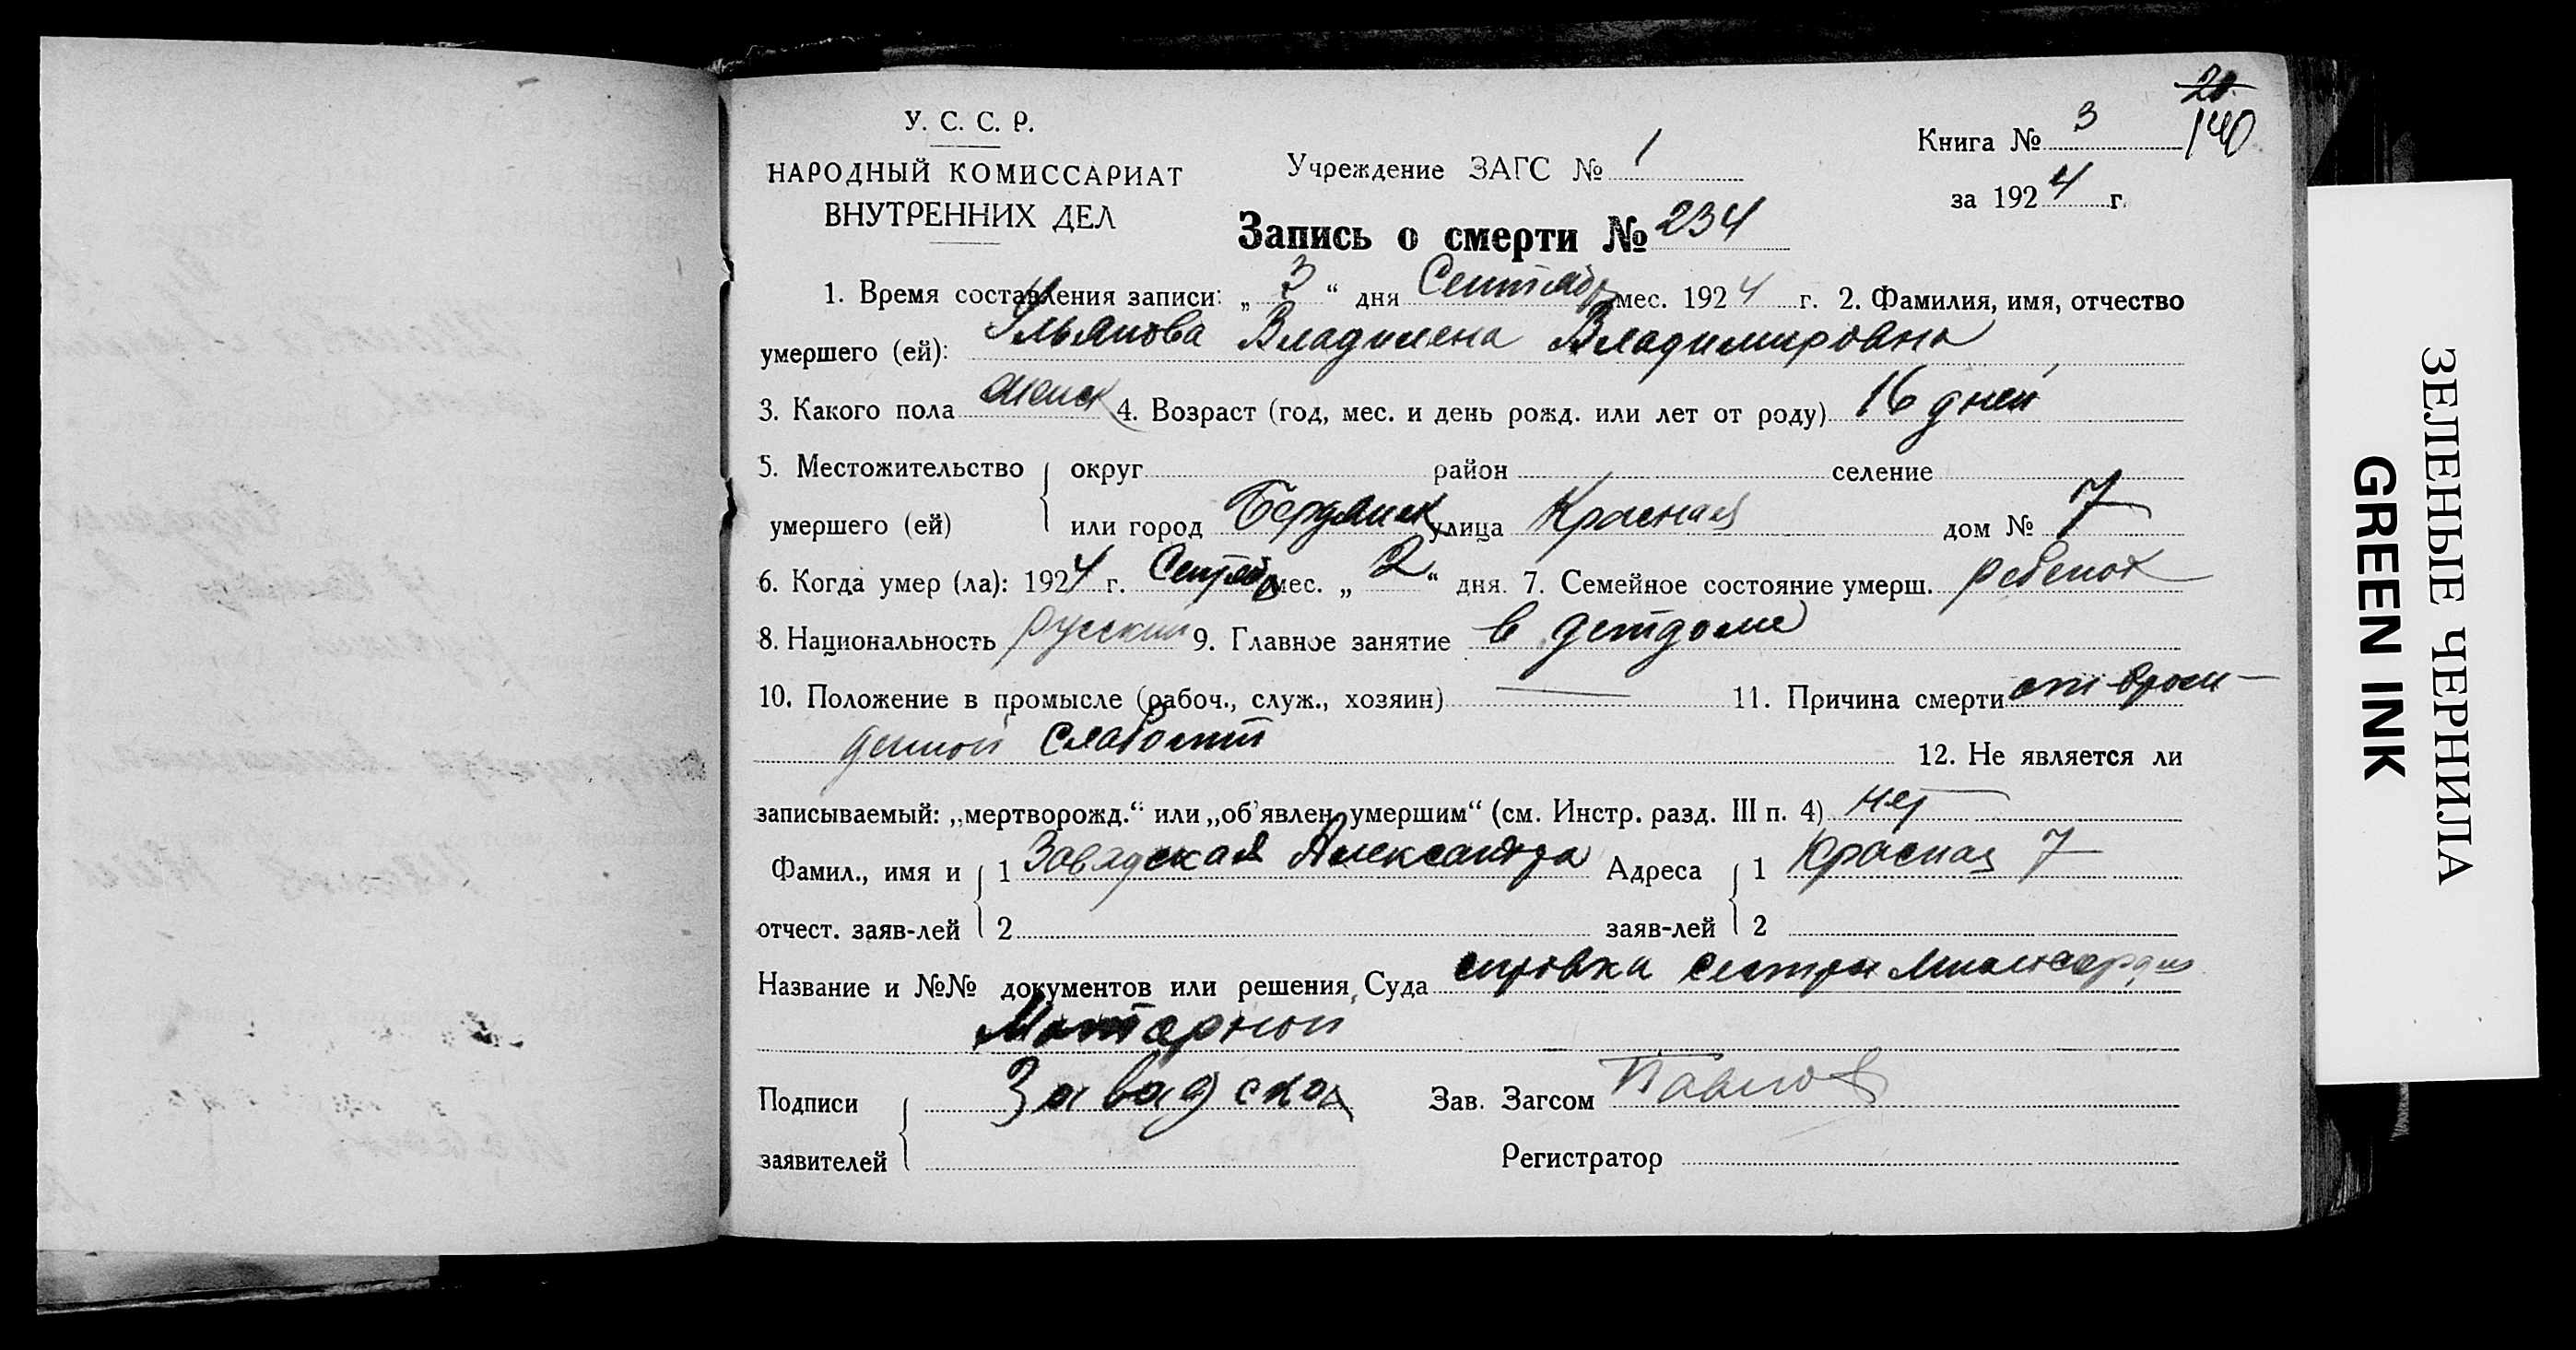 20.
140
У. С. С. Р.
НАРОДНЫЙ КОМИССАРИАТ
ВНУТРЕННИХ ДЕЛ
Учреждение ЗАГС № 1
Книга № 3
за 1924 г.
Запись о смерти № 234
1. Время составления записи: „ 3 “ дня Сентябр мес. 1924 г. 2. Фамилия, имя, отчество
умершего (ей): Ульянова Владилена Владимировна
3. Какого пола женск 4. Возраст (год, мес. и день рожд. или лет от роду) 16 дней
5. Местожительство округ район селение
умершего (ей) или город Бердянск улица Красная дом № 7
6. Когда умер (ла): 1924 г. Сентябр мес. „ 2 “ дня. 7. Семейное состояние умерш. ребенок
8. Национальность русский 9. Главное занятие в детдоме
10. Положение в промысле (рабоч., служ., хозяин) — 11. Причина смерти от врож-
денной слабости
12. Не является ли
записываемый: „мертворожд.“ или „об'явлен умершим“ (см. Инстр. разд. III п. 4) нет
Фамил., имя и 1 Завадская Александра Адреса 1 Красная 7
отчест. заяв-лей 2 заяв-лей 2
Название и №№ документов или решения Суда справка сестры милосердия
Подписи Завадская Зав. Загсом Павлов
заявителей Регистратор
ЗЕЛЕНЫЕ ЧЕРНИЛА
GREEN INK